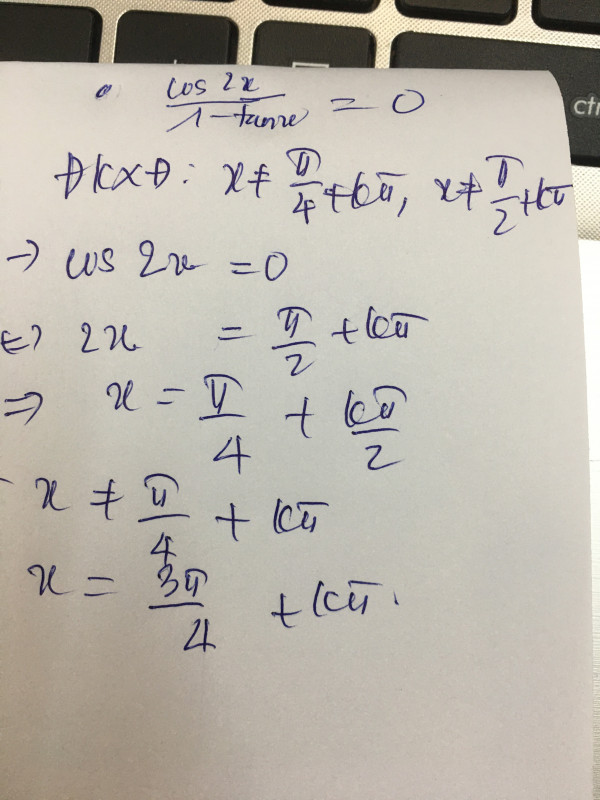 cos 2x / (1 - tanx) = 0
ĐKXĐ: x ≠ π/4 + kπ, x ≠ π/2 + kπ
→ cos 2x = 0
⇔ 2x = π/2 + kπ
⇒ x = π/4 + kπ/2
x ≠ π/4 + kπ
x = 3π/4 + kπ.
ctr